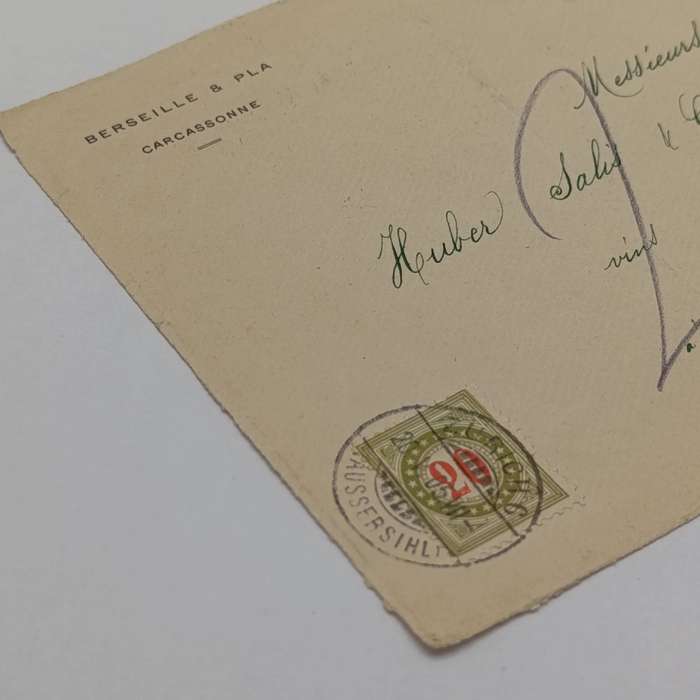 BERSEILLE & PLA
CARCASSONNE
Messieurs
Huber Salis &
vins
à
2
20
ZÜRICH 6
AUSSERSIHL